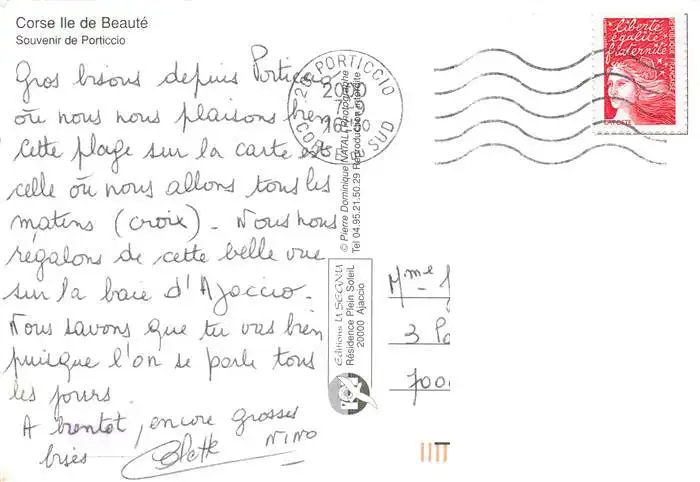 Corse Ile de Beauté
Souvenir de Porticcio
Gros bisous depuis Porticcio
où nous nous plaisons bien
Cette plage sur la carte est
celle où nous allons tous les
matins (croix). Nous nous
régalons de cette belle vue
sur la baie d'Ajaccio.
Nous savons que tu vas bien
puisque l'on se parle tous
les jours.
A bientot, encore grosses
bises
NINO
PORTICCIO
2000
CORSE DU SUD
© Pierre Dominique NATALI Photographe
Tel 04.95.21.50.29 Reproduction interdite
Editions U SEGNU
Résidence Plein Soleil
20000 Ajaccio
liberté
égalité
fraternité
RÉPUBLIQUE FRANÇAISE
LA POSTE
Mme
3